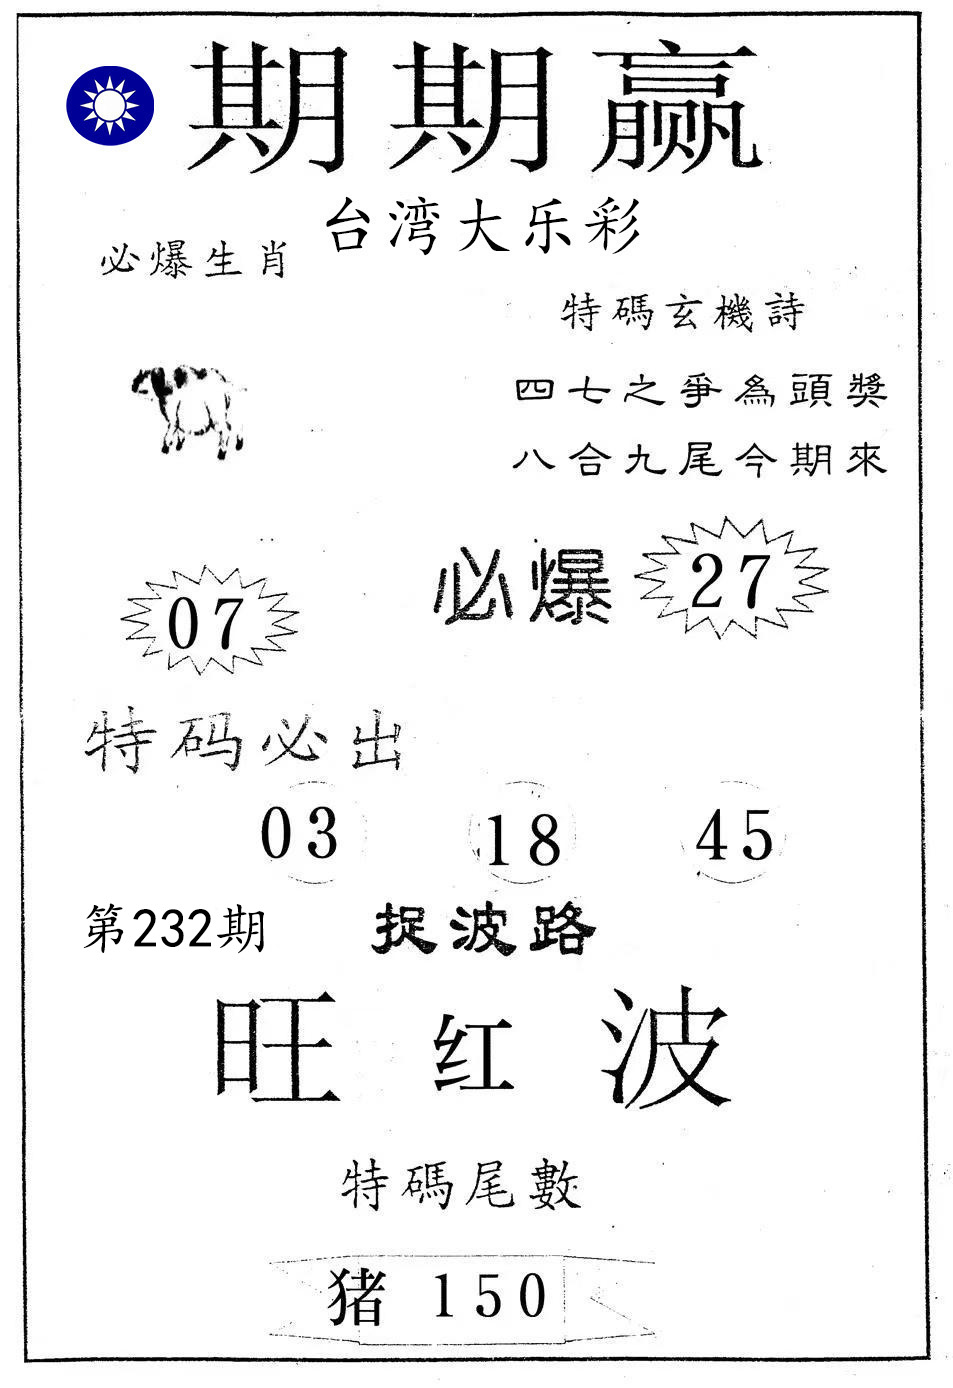 期期赢
台湾大乐彩
必爆生肖
特碼玄機詩
四七之爭為頭獎
八合九尾今期來
07
必爆 27
特码必出
03 18 45
第232期 捉波路
旺红波
特碼尾數
猪 150